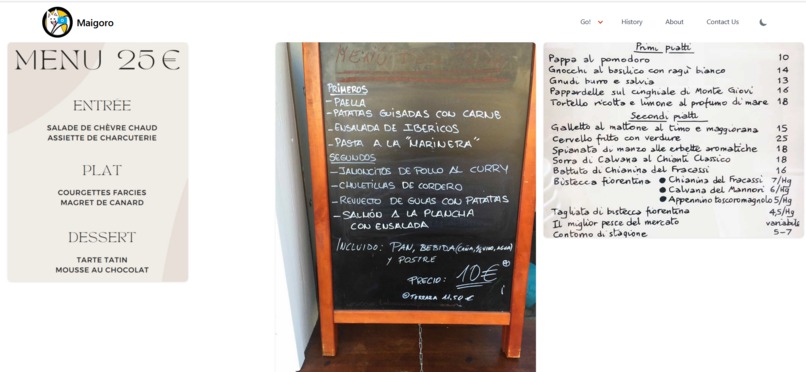 Maigoro
Go!
History
About
Contact Us
MENU 25€
ENTRÉE
SALADE DE CHÈVRE CHAUD
ASSIETTE DE CHARCUTERIE
PLAT
COURGETTES FARCIES
MAGRET DE CANARD
DESSERT
TARTE TATIN
MOUSSE AU CHOCOLAT
PRIMEROS
-PAELLA
-PATATAS GUISADAS CON CARNE
-ENSALADA DE IBERICOS
-PASTA A LA "MARINERA"
SEGUNDOS
-JAMONCITOS DE POLLO AL CURRY
-CHULETILLAS DE CORDERO
-REVUECTO DE GULAS CON PATATAS
-SALMÓN A LA PLANCHA
CON ENSALADA
INCLUIDO: PAN, BEBIDA
Y POSTRE
PRECIO: 10€
TERRAZA 11,50 €
Primi piatti
Pappa al pomodoro 10
Gnocchi al basilico con ragù bianco 14
Gnudi burro e salvia 13
Pappardelle sul cinghiale di Monte Giovi 16
Tortello ricotta e limone al profumo di mare 18
Secondi piatti
Galletto al mattone al timo e maggiorana 15
Cervello fritto con verdure 25
Spianata di manzo alle erbette aromatiche 18
Sorra di Calvana al Chianti Classico 18
Battuto di Chianina del Fracassi 16
Bistecca fiorentina ● Chianina del Fracassi 7/Hg
● Calvana del Mannori 6/Hg
● Appennino toscoromagnolo 5/Hg
Tagliata di bistecca fiorentina 4,5/Hg
Il miglior pesce del mercato variabile
Contorno di stagione 5-7